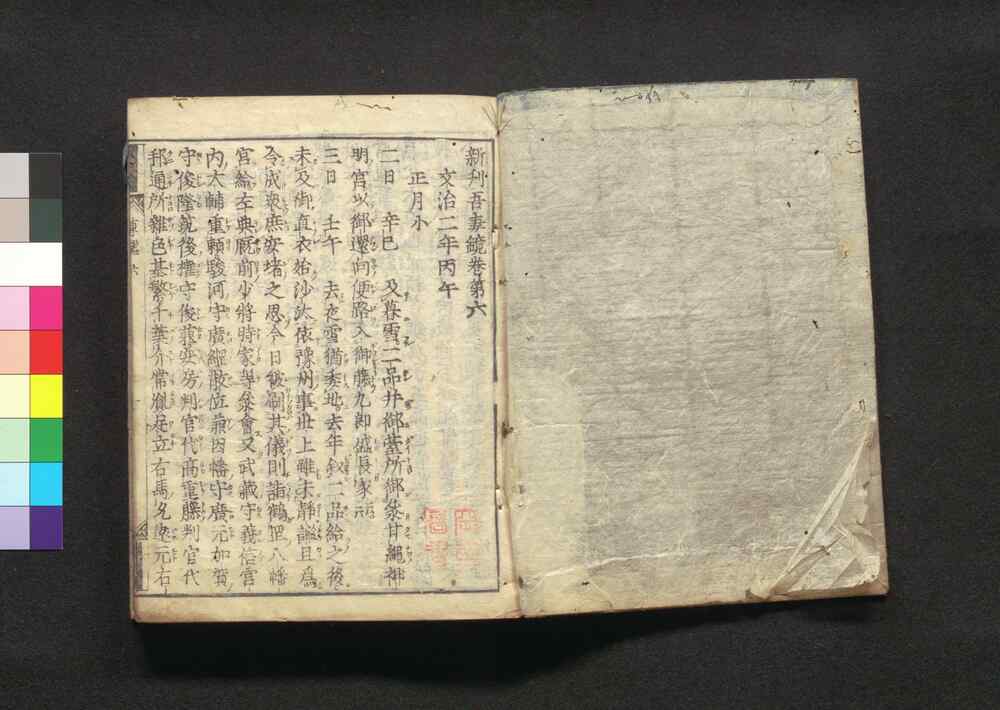 新刊吾妻鏡卷第六
文治二年丙午
正月小
二日 辛巳 及暮雪二品并御臺所御參甘繩神
明宮以御還向便路入御藤九郎盛長家云云
三日 壬午 去夜雪猶委地去年叙二品給之後
未及御直衣始沙汰依豫州事世上雖未靜謐且爲
今成衆庶安堵之思今日被刷其儀則詣鶴岡八幡
宮給左典厩前少將時家等參會又武藏守義信宮
内大輔重頼駿河守廣綱散位頼兼因幡守廣元加賀
守俊隆筑後權守俊兼安房判官代高重藤判官代
邦通所雜色基繁千葉介常胤足立右馬允遠元右